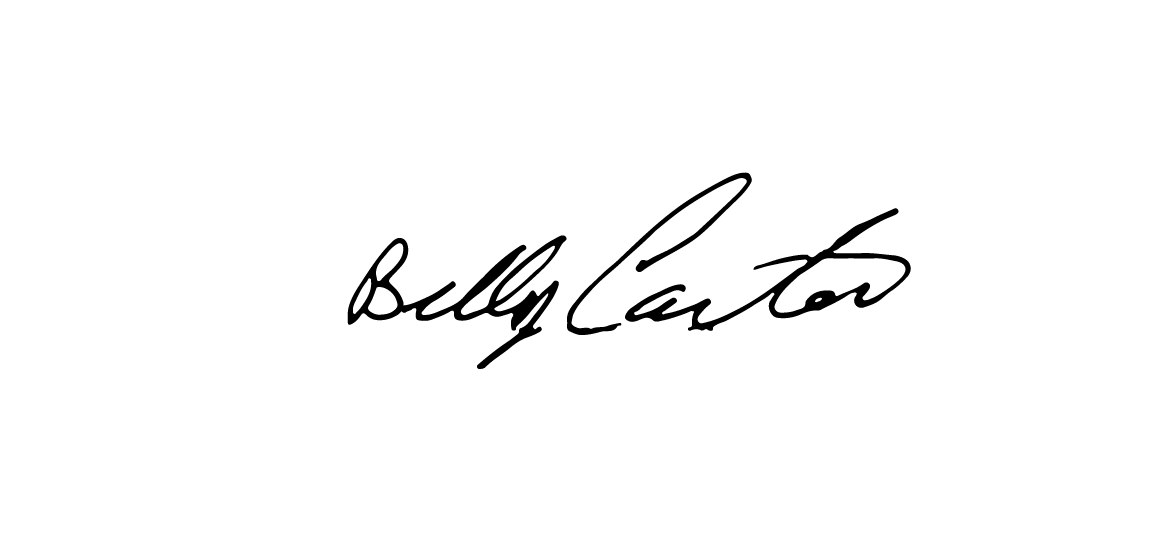 Billy Carter